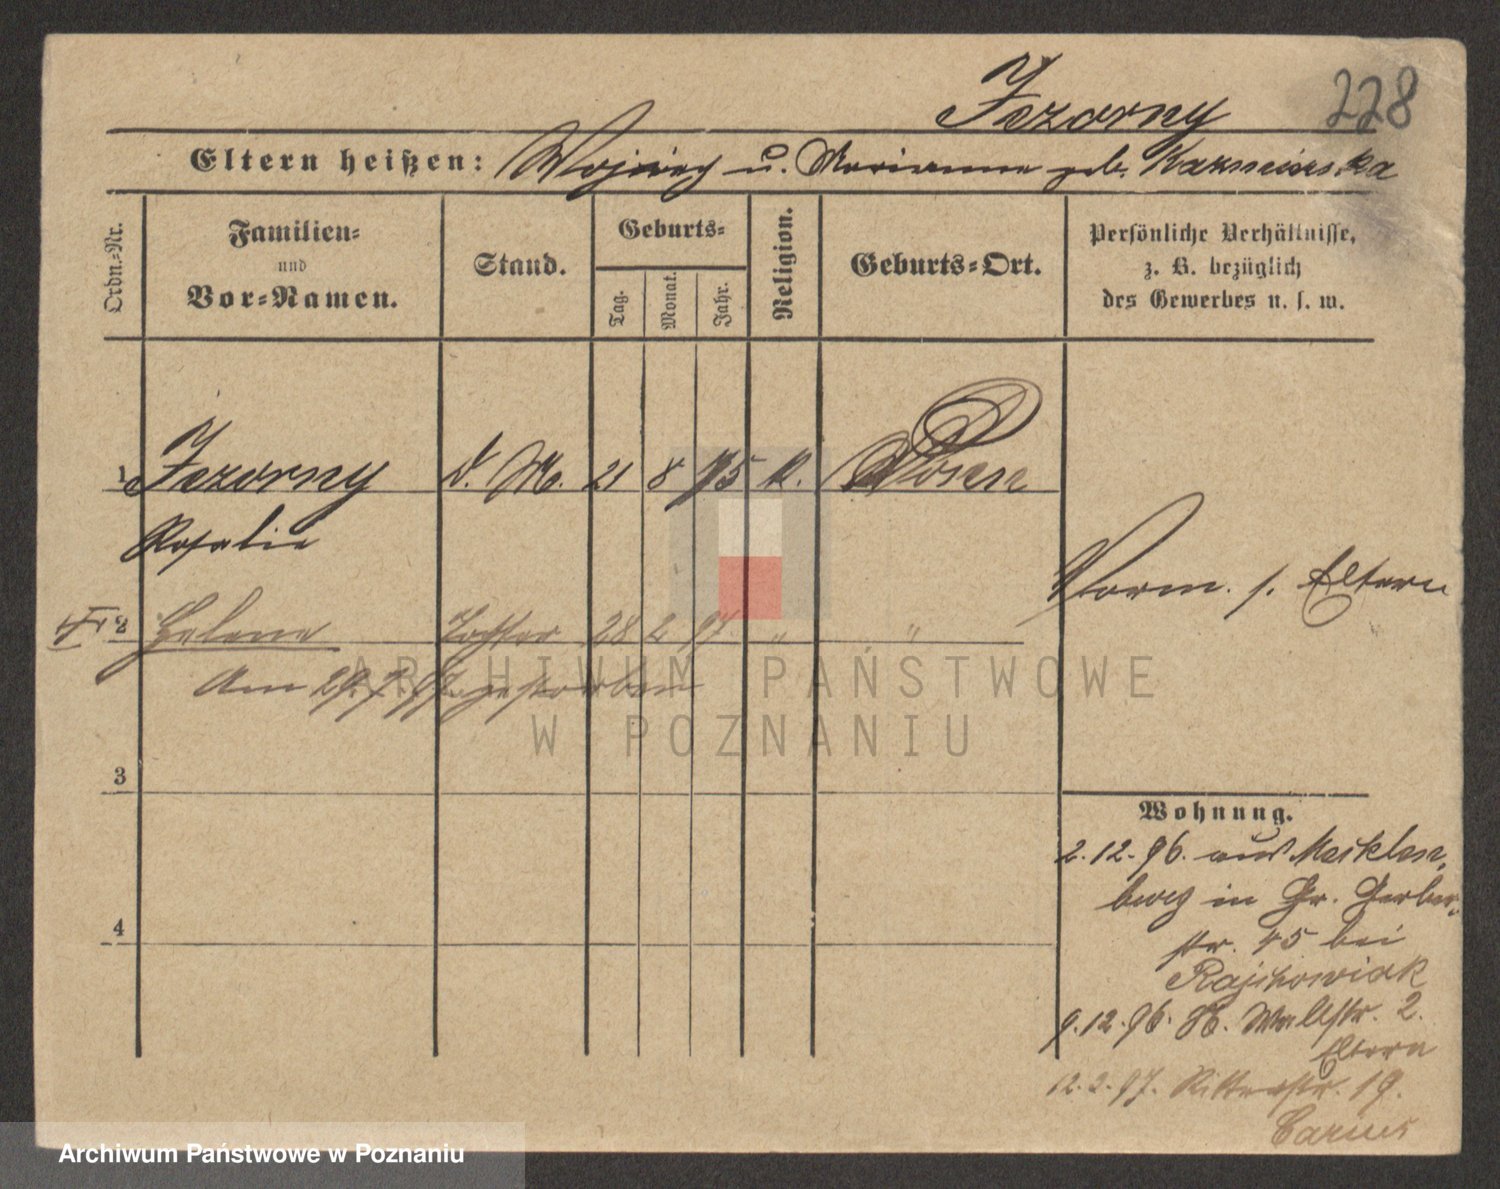 Jezorny 228
Eltern heißen: Wojciech u. Marianna geb. Kazmierska
Ordn.-Nr.
Familien-
und
Vor-Namen.
Stand.
Geburts-
Tag.
Monat.
Jahr.
Religion.
Geburts-Ort.
Persönliche Verhältnisse,
z. B. bezüglich
des Gewerbes u. s. w.
1 Jezorny d. M. 21 8 75 k. Posen
Rosalie
Vorm. s. Eltern
2 Helene Tochter 28 2 97 " "
Am 29.7.97. gestorben
ARCHIWUM PAŃSTWOWE
W POZNANIU
3
Wohnung.
2.12.96. aus Mecklen-
burg in Gr. Gerber-
str. 45 bei
4
9.12.96. Wallstr. 2.
Eltern
12.2.97. Ritterstr. 19.
Archiwum Państwowe w Poznaniu